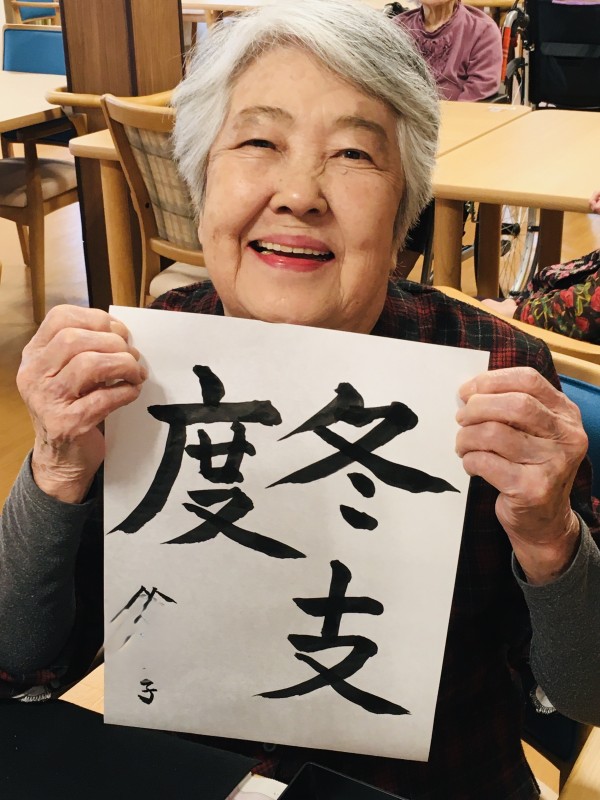 冬支
度
子